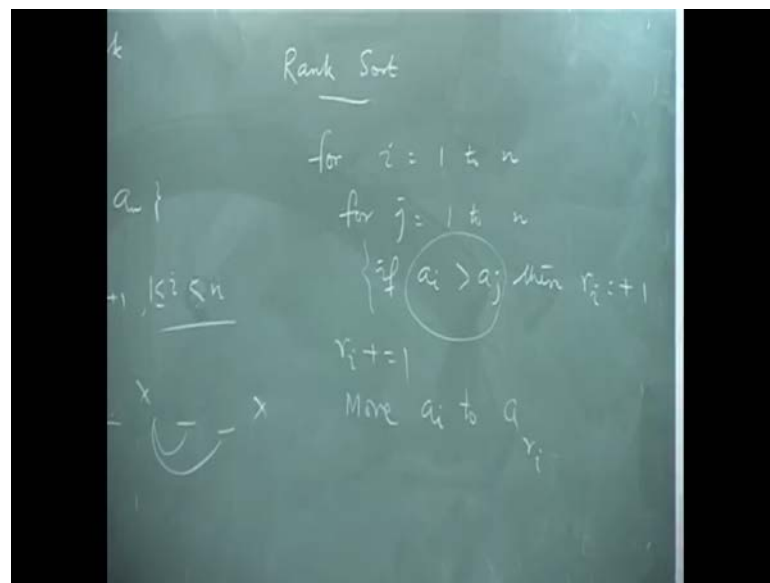 k
Rank Sort
for i = 1 to n
aₙ }
for j = 1 to n
{ if aᵢ > aⱼ then rᵢ :+1
+1, 1 ≤ i ≤ n
rᵢ += 1
Move aᵢ to a_{rᵢ}